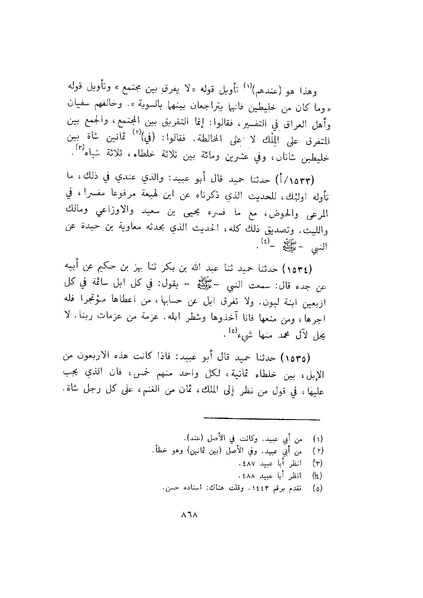 وهذا هو (عندهم)(١) تأويل قوله «لا يفرق بين مجتمع» وتأويل قوله
«وما كان من خليطين فانهما يتراجعان بينهما بالسوية». وخالفهم سفيان
وأهل العراق في التفسير، فقالوا: إنما التفريق بين المجتمع، والجمع بين
المتفرق على الملك لا على المخالطة. فقالوا: (في)(٢) ثمانين شاة بين
خليطين شاتان، وفي عشرين ومائة بين ثلاثة خلطاء، ثلاثة شياه(٣).
(١٥٣٣/أ) حدثنا حميد قال أبو عبيد: والذي عندي في ذلك، ما
تأوله اولئك، للحديث الذي ذكرناه عن ابن لهيعة مرفوعا مفسرا، في
المرعى والحوض، مع ما فسره يحيى بن سعيد والاوزاعي ومالك
والليث. وتصديق ذلك كله، الحديث الذي يحدثه معاوية بن حيدة عن
النبي -ﷺ-(٤).
(١٥٣٤) حدثنا حميد ثنا عبد الله بن بكر ثنا بهز بن حكيم عن أبيه
عن جده قال: سمعت النبي -ﷺ- يقول: في كل ابل سائمة في كل
اربعين ابنة لبون. ولا تفرق ابل عن حسابها، من اعطاها مؤتجرا فله
اجرها، ومن منعها فانا آخذوها وشطر ابله. عزمة من عزمات ربنا. لا
يحل لآل محمد منها شيء(٥).
(١٥٣٥) حدثنا حميد قال أبو عبيد: فاذا كانت هذه الاربعون من
الإبل، بين خلطاء ثمانية، لكل واحد منهم خمس، فان الذي يجب
عليها، في قول من نظر إلى الملك، ثمان من الغنم، على كل رجل شاة.
(١) من أبي عبيد. وكانت في الأصل (عند).
(٢) من أبي عبيد. وفي الأصل (بين ثمانين) وهو خطأ.
(٣) انظر أبا عبيد ٤٨٧.
(٤) انظر أبا عبيد ٤٨٨.
(٥) تقدم برقم ١٤٤٣. وقلت هناك: اسناده حسن.
٨٦٨